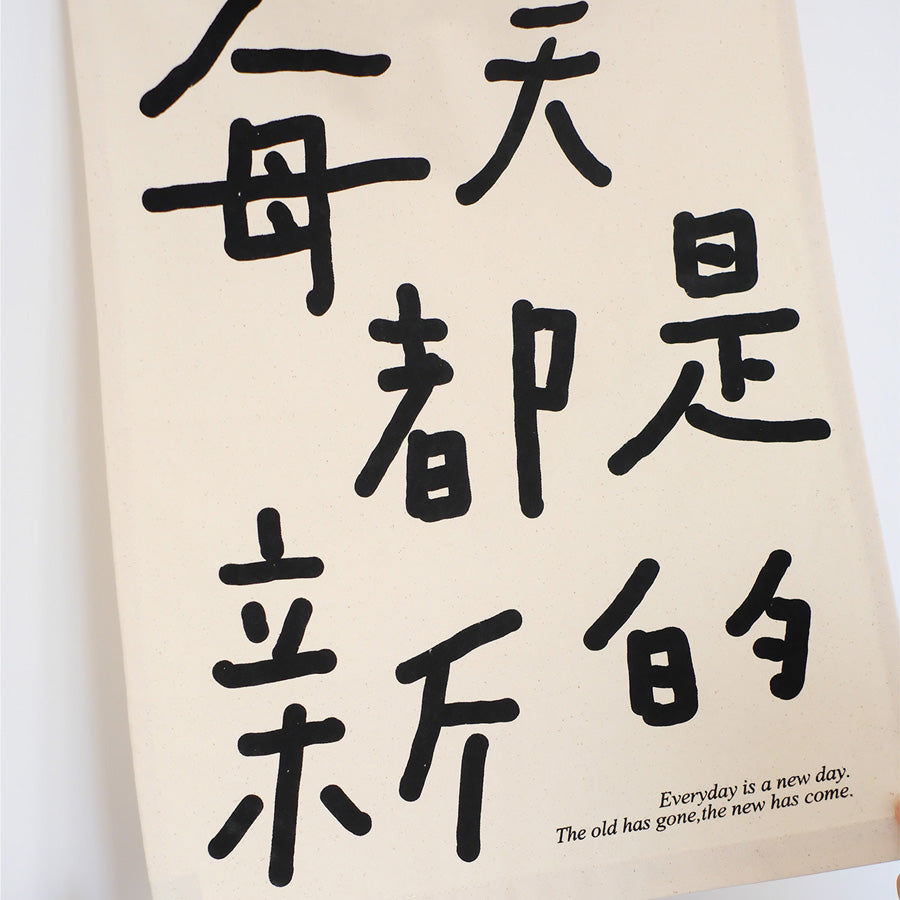 每天
都是
新的
Everyday is a new day.
The old has gone,the new has come.